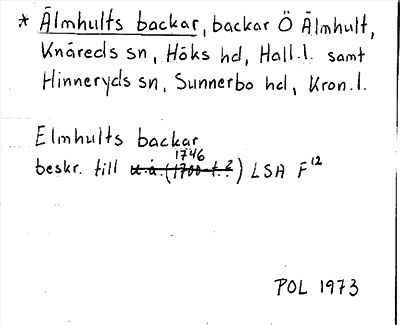 * Älmhults backar, backar Ö Älmhult,
Knäreds sn, Höks hd, Hall.l. samt
Hinneryds sn, Sunnerbo hd, Kron.l.
Elmhults backar
1746
beskr. till u.å. (1700-t.?) LSA F12
POL 1973